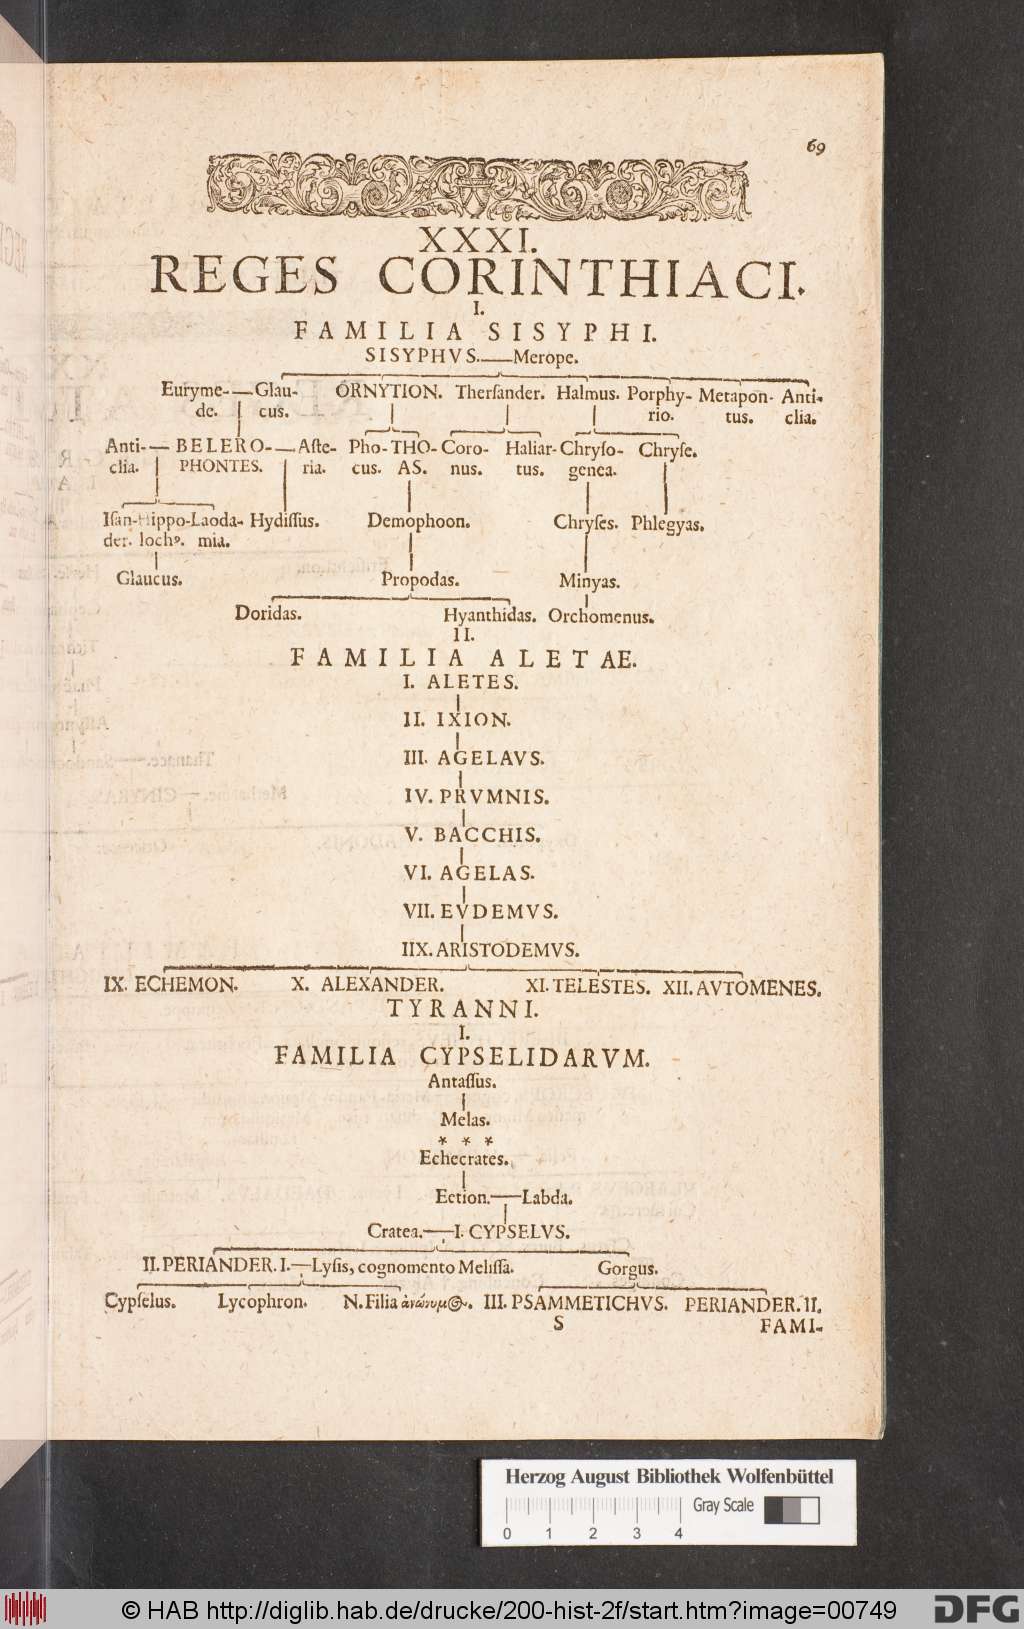 69
XXXI.
REGES CORINTHIACI.
I.
FAMILIA SISYPHI.
SISYPHVS.—Merope.
Euryme-—Glau- ORNYTION. Therſander. Halmus. Porphy- Metapon- Anti-
de. cus. rio. tus. clia.
Anti-—BELERO-—Aſte- Pho-THO-Coro- Haliar-Chryſo- Chryſe.
clia. PHONTES. ria. cus. AS. nus. tus. genea.
Iſan-Hippo-Laoda- Hydiſſus. Demophoon. Chryſes. Phlegyas.
der. lochꝰ. mia.
Glaucus. Propodas. Minyas.
Doridas. Hyanthidas. Orchomenus.
II.
FAMILIA ALETAE.
I. ALETES.
II. IXION.
III. AGELAVS.
IV. PRVMNIS.
V. BACCHIS.
VI. AGELAS.
VII. EVDEMVS.
IIX. ARISTODEMVS.
IX. ECHEMON. X. ALEXANDER. XI. TELESTES. XII. AVTOMENES.
TYRANNI.
I.
FAMILIA CYPSELIDARVM.
Antaſſus.
Melas.
* * *
Echecrates.
Eetion.—Labda.
Cratea.—I. CYPSELVS.
II. PERIANDER. I.—Lyſis, cognomento Meliſſa. Gorgus.
Cypſelus. Lycophron. N. Filia ἀνώνυμ. III. PSAMMETICHVS. PERIANDER. II.
S FAMI-
Herzog August Bibliothek Wolfenbüttel
Gray Scale
0 1 2 3 4
© HAB http://diglib.hab.de/drucke/200-hist-2f/start.htm?image=00749 DFG